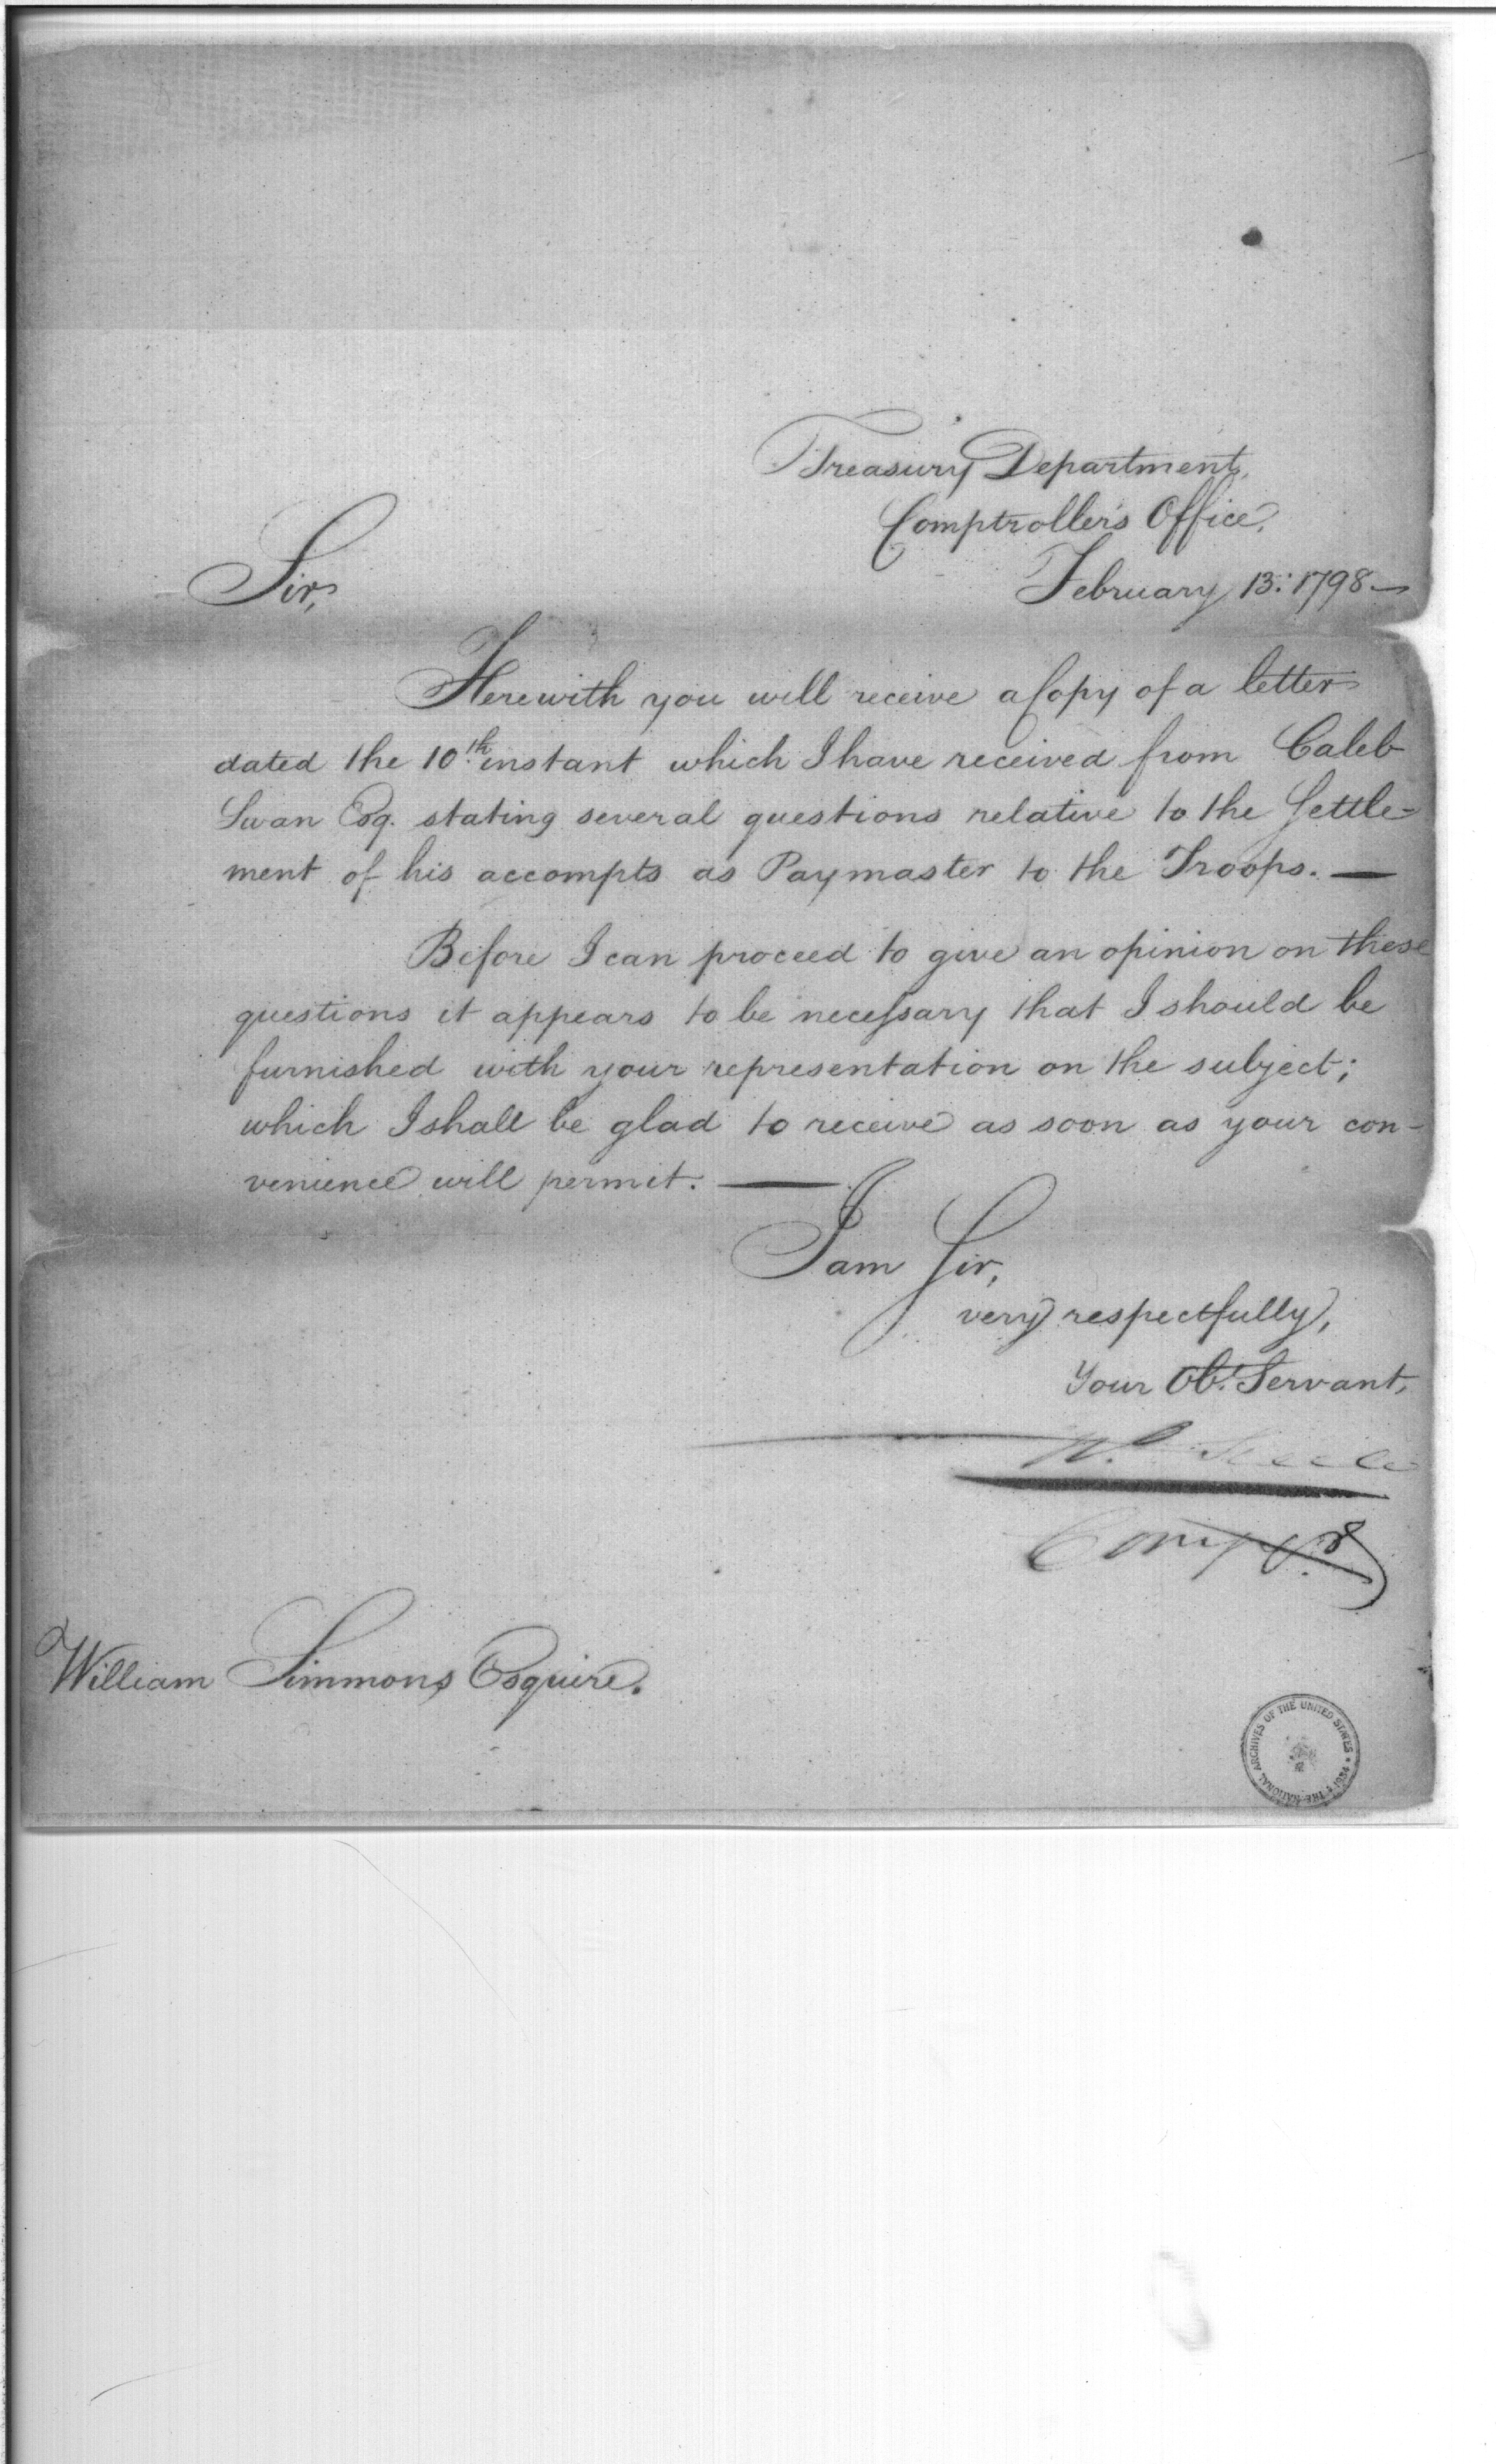 Treasury Department,
Comptroller's Office,
February 13: 1798—
Sir,
Herewith you will receive a Copy of a letter
dated the 10th instant which I have received from Caleb
Swan Esq. stating several questions relative to the Settle-
ment of his accompts as Paymaster to the Troops. —
Before I can proceed to give an opinion on these
questions it appears to be necessary that I should be
furnished with your representation on the subject;
which I shall be glad to receive as soon as your con-
venience will permit. —
I am Sir,
very respectfully,
Your Obt. Servant,
Steele
Compr.
William Simmons Esquire.
THE NATIONAL ARCHIVES OF THE UNITED STATES • 1934 •